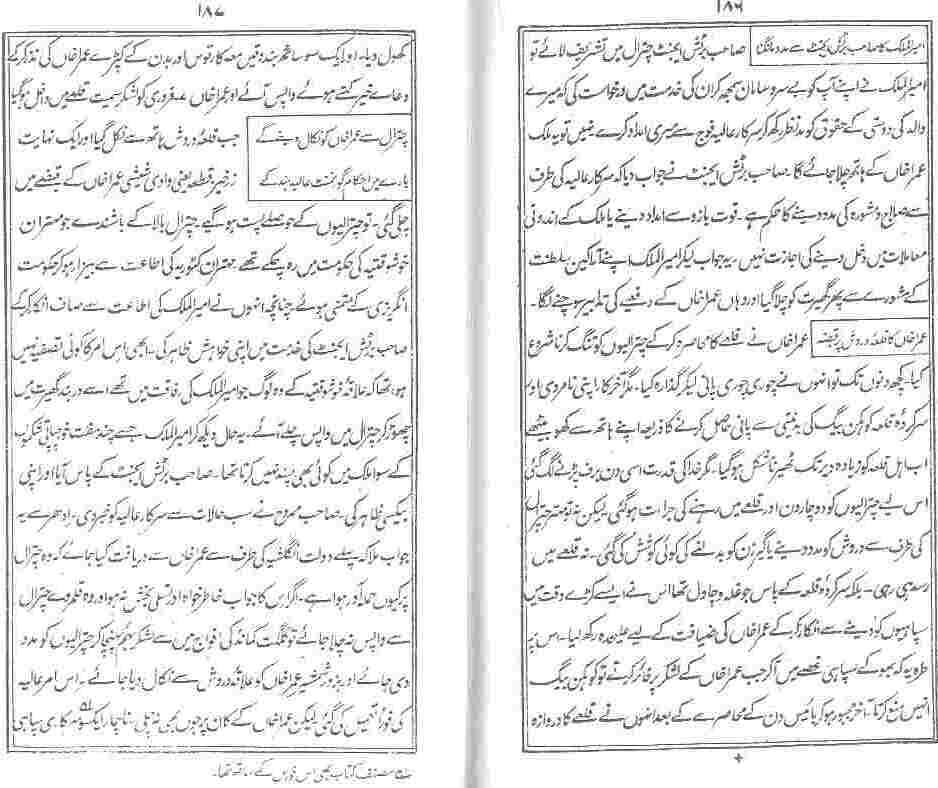 ۱۸۶
امیرالملک کا صاحب برٹش ایجنٹ سے مدد مانگنا
صاحب برٹش ایجنٹ چترال میں تشریف لائے تو
امیرالملک نے اپنے آپ کو بے سروسامان سمجھ کر ان کی خدمت میں درخواست کی کہ میرے
والد کی دوستی کے حقوق کو مدنظر رکھ کر سرکار عالیہ فوج سے میری امداد کرے نہیں تو یہ ملک
عمراخاں کے ہاتھ چلا جائے گا۔ صاحب برٹش ایجنٹ نے جواب دیا کہ سرکار عالیہ کی طرف
سے صلاح و مشورہ کی مدد دینے کا حکم ہے۔ قوت بازو سے امداد دینے یا ملک کے اندرونی
معاملات میں دخل دینے کی اجازت نہیں۔ یہ جواب لیکر امیرالملک اپنے اراکین سلطنت
کے مشورے سے پھر گہیرت کو چلا گیا اور وہاں عمراخاں کے دفعیے کی تدابیر سوچنے لگا۔
عمراخاں کا قلعۂ دروش پر قبضہ
عمراخاں نے قلعے کا محاصرہ کرکے چترالیوں کو تنگ کرنا شروع
کیا۔ کچھ دنوں تک تو انہوں نے چوری چوری پانی لیکر گذارہ کیا۔ مگر آخر کار اپنی نامردی اور
سرکردۂ قلعہ کوکہن بیگ کی بدنیتی سے پانی حاصل کرنے کا ذریعہ اپنے ہاتھ سے کھو بیٹھے
اب اہل قلعہ کو زیادہ دیر تک ٹھیرنا مشکل ہو گیا۔ مگر خدا کی قدرت اسی دن برف پڑنے لگ گئی
اس لیے چترالیوں کو دو چار دن اور قلعے میں رہنے کی جرات ہو گئی لیکن نہ تو مہتر چترال
کی طرف سے دروش کو مدد دینے یا گیرزن کو بدلنے کی کوئی کوشش کی گئی۔ نہ قلعے میں
رسد ہی رہی۔ بلکہ سرکردۂ قلعہ کے پاس جو غلہ و چاول تھا اس نے ایسے کڑے وقت میں
سپاہیوں کو دینے سے انکار کرکے عمراخاں کی ضیافت کے لیے علیحدہ رکھ لیا۔ اس پر
طرہ یہ کہ بھوکے سپاہی غصے میں آ کر جب عمراخاں کے لشکر پر فائر کرتے تو کوکہن بیگ
انہیں منع کرتا۔ آخر مجبور ہو کر بائیس دن کے محاصرے کے بعد انہوں نے قلعے کا دروازہ
۱۸۷
کھول دیا۔ اور ایک سو ساٹھ عمربند بندوقیں معہ کارتوس اور بدن کے کپڑے عمراخاں کی نذر کرکے
دعائے خیر کہتے ہوئے واپس آئے اور عمراخاں ۷۔ فروری کو لشکر سمیت قلعے میں داخل ہو گیا
چترال سے عمراخاں کو نکال دینے کے
بارے میں احکام گورنمنٹ عالیہ ہند کے
جب قلعۂ دروش ہاتھ سے نکل گیا اور ایک نہایت
زرخیز قطعہ یعنی وادی شیشی عمراخاں کے قبضے میں
چلی گئی۔ تو چترالیوں کے حوصلے پست ہو گئے۔ چترال بالا کے باشندے جو مہتران
خوشوقتیہ کی حکومت میں رہ چکے تھے مہتران کٹوریہ کی اطاعت سے بیزار ہو کر حکومت
انگریزی کے متمنی ہوئے چنانچہ انہوں نے امیرالملک کی اطاعت سے صاف انکار کرکے
صاحب برٹش ایجنٹ کی خدمت میں اپنی خواہش ظاہر کی۔ ابھی اس امر کا کوئی تصفیہ نہیں
ہوا تھا کہ علاقۂ خوشوقتیہ کے وہ لوگ جو امیرالملک کی رفاقت میں تھے اسے دربند گہیرت میں
چھوڑ کر چترال میں واپس چلے آئے۔ یہ حال دیکھ کر امیرالملک جسے چند مفت خور چاپی شکرپ
کے سوا ملک میں کوئی بھی پسند نہیں کرتا تھا۔ صاحب برٹش ایجنٹ کے پاس آیا اور اپنی
بیکسی ظاہر کی۔ صاحب ممدوح نے سب حالات سے سرکار عالیہ کو خبر دی۔ ادھر سے یہ
جواب ملا کہ پہلے دولت انگلشیہ کی طرف سے عمراخاں سے دریافت کیا جائے کہ وہ چترال
پر کیوں حملہ آور ہوا ہے۔ اگر اس کا جواب خاطر خواہ اور تسلی بخش نہ ہو اور وہ قلمرو چترال
سے واپس نہ چلا جائے تو گلگت کمانڈ کی افواج میں سے لشکر بہم پہنچا کر چترالیوں کو مدد
دی جائے اور بزور شمشیر عمراخاں کو علاقۂ دروش سے نکال دیا جائے۔ اس امر عالیہ
کی فوراً تعمیل کی گئی لیکن عمراخاں کے کان پر جوں بھی نہ چلی۔ ناچار ایک سو سکھ سپاہی
مصنف کتاب بھی اس فورس کے ساتھ تھا۔